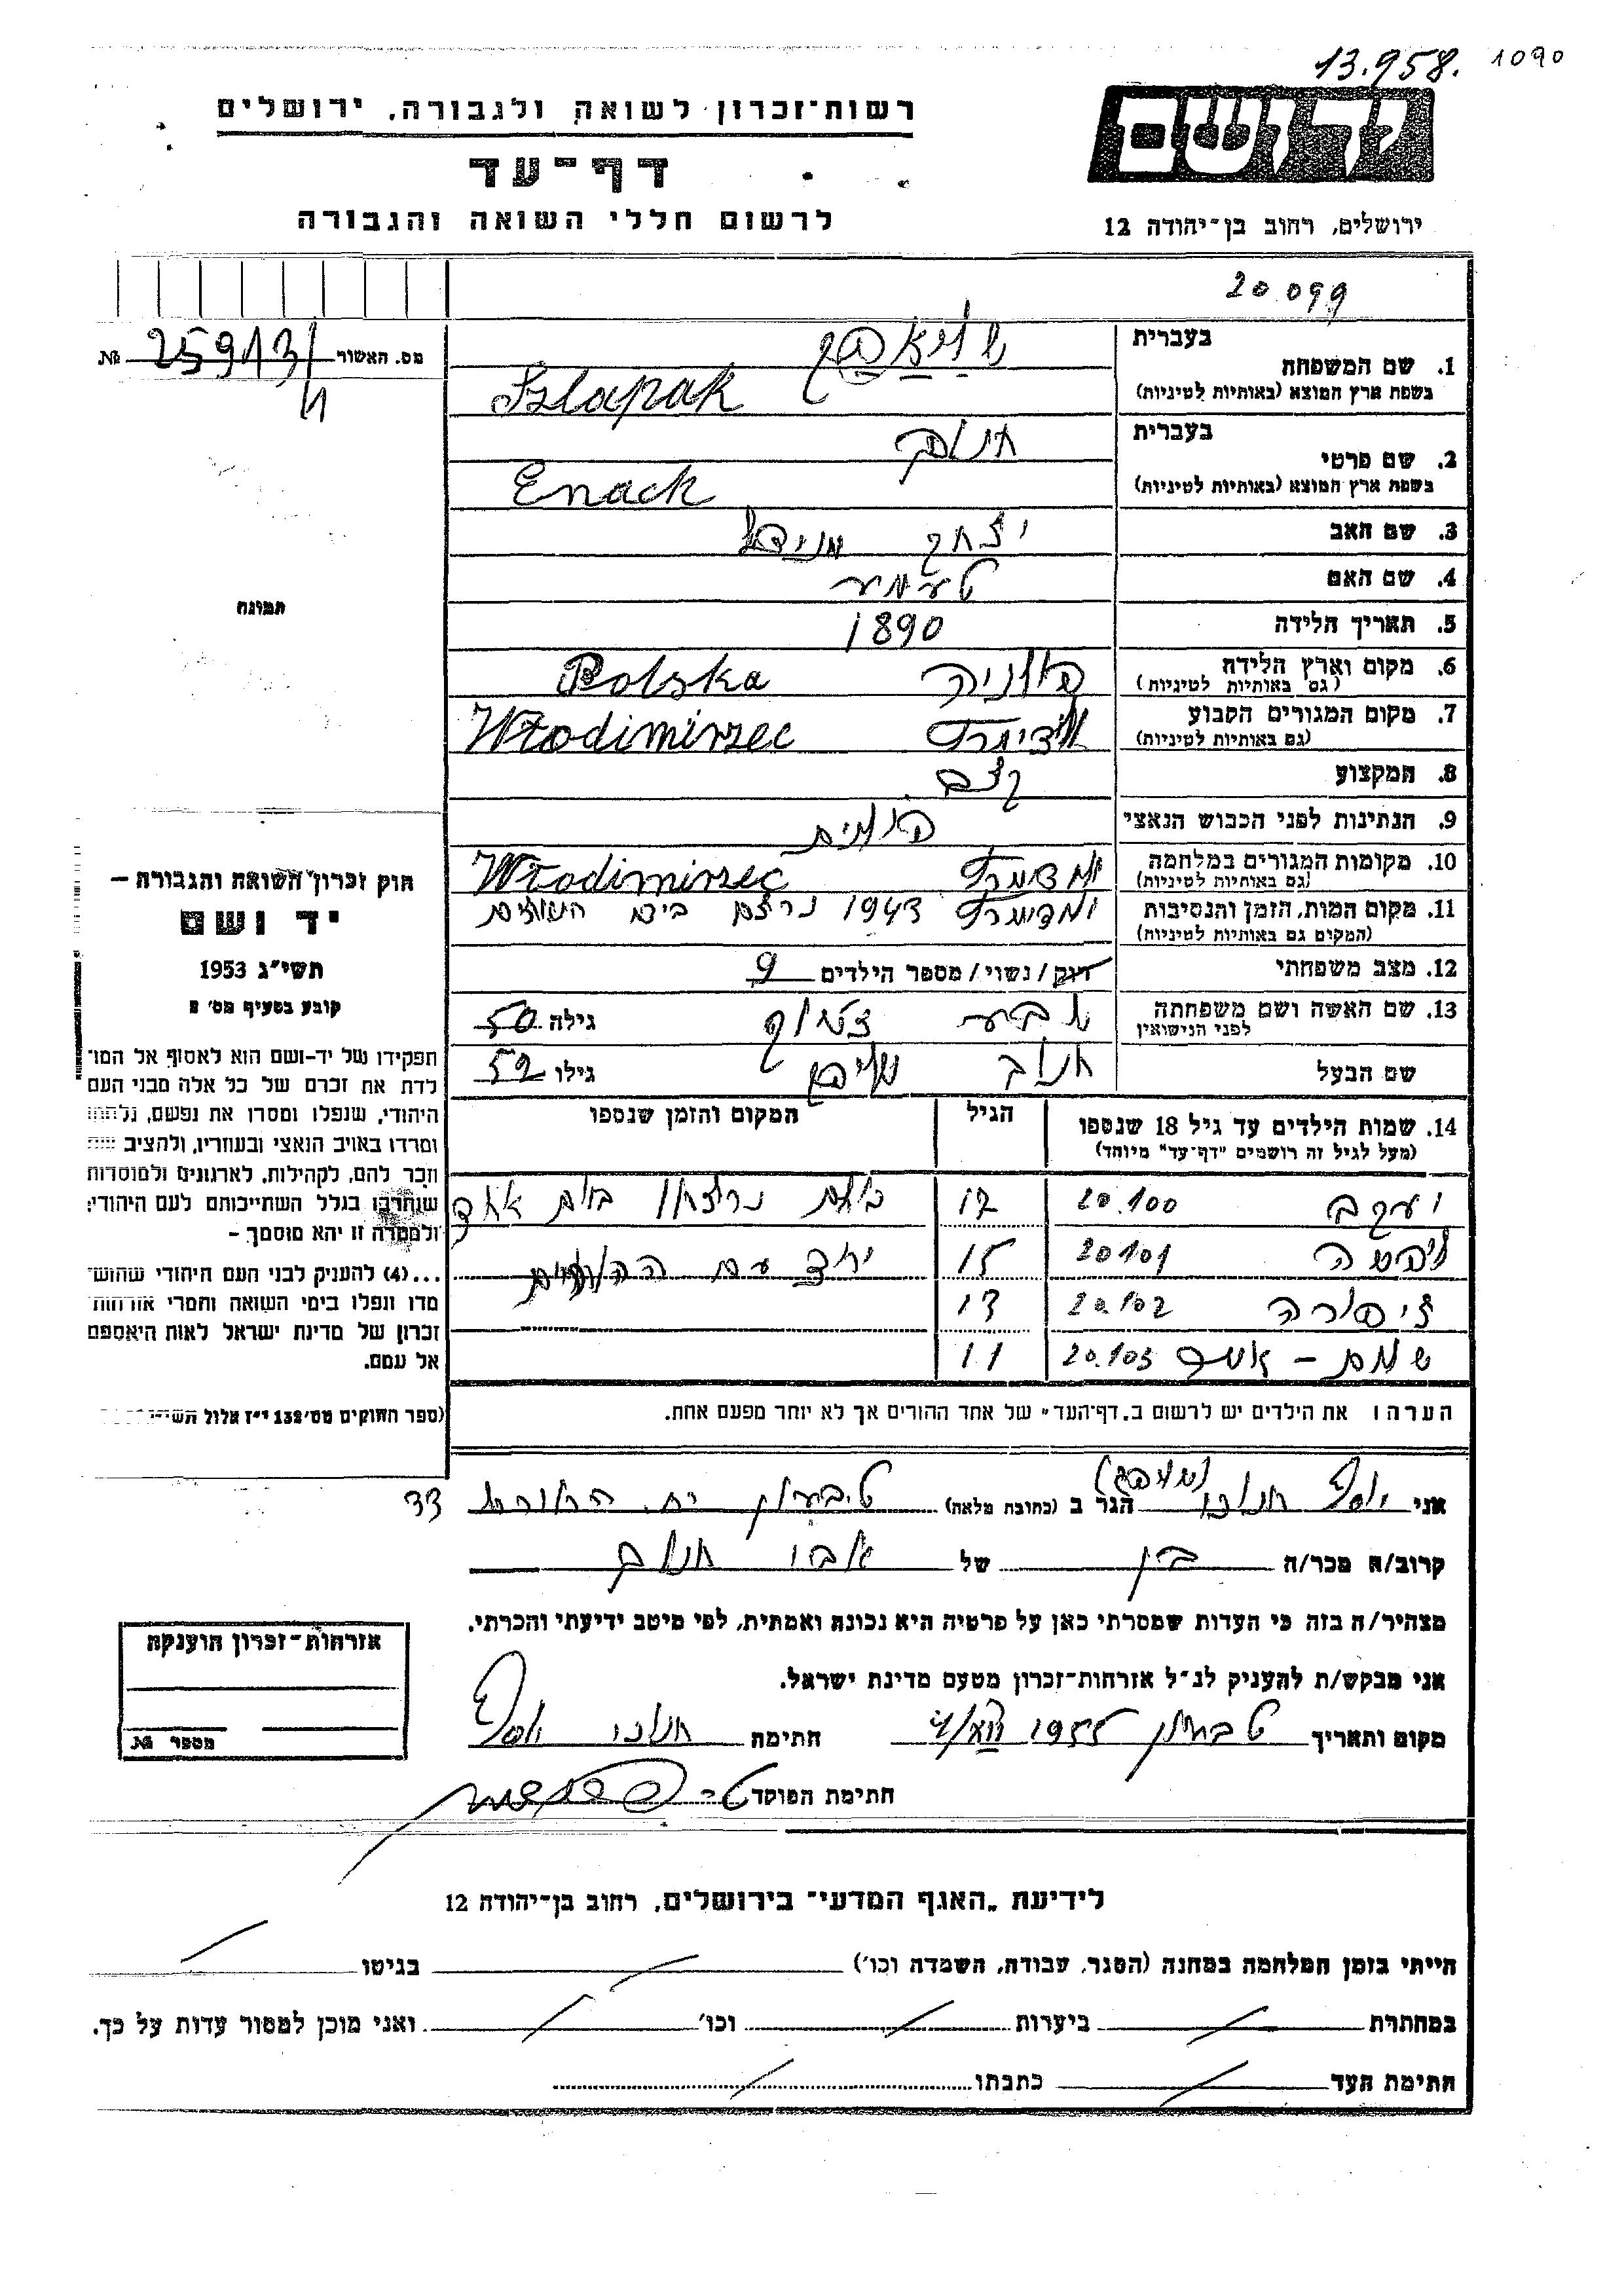 13.958. 1090
יד ושם
רשות-זכרון לשואה ולגבורה, ירושלים
דף-עד
לרשום חללי השואה והגבורה
ירושלים, רחוב בן-יהודה 12
20 099
מס. האשור 25913/ №
1. שם המשפחה
בעברית
בשפת ארץ המוצא (באותיות לטיניות) Szlapak
2. שם פרטי
בעברית חנוך
בשפת ארץ המוצא (באותיות לטיניות) Enack
3. שם האב יצחק
4. שם האם
5. תאריך הלידה 1890
6. מקום וארץ הלידה פולניה Polska
(גם באותיות לטיניות)
7. מקום המגורים הקבוע Włodimirzec
(גם באותיות לטיניות)
8. המקצוע קצב
9. הנתינות לפני הכבוש הנאצי פולנית
10. מקומות המגורים במלחמה Włodimirzec
(גם באותיות לטיניות)
11. מקום המות, הזמן והנסיבות 1943 נרצח
(המקום גם באותיות לטיניות)
12. מצב משפחתי רווק/נשוי/מספר הילדים 9
13. שם האשה ושם משפחתה
לפני הנישואין
גילה 50
שם הבעל חנוך גילו 52
14. שמות הילדים עד גיל 18 שנספו
(מעל לגיל זה רושמים "דף-עד" מיוחד)
הגיל
המקום והזמן שנספו
יעקב 20.100 17 נרצחו ביום אחד
20101 15 יחד עם ההורים
ציפורה 20.102 13
20.103 11
הערה: את הילדים יש לרשום ב„דף-העד" של אחד ההורים אך לא יותר מפעם אחת.
תמונה
חוק זכרון השואה והגבורה –
יד ושם
תשי"ג 1953
קובע בסעיף מס' 2
תפקידו של יד-ושם הוא לאסוף אל המו־
לדת את זכרם של כל אלה מבני העם
היהודי, שנפלו ומסרו את נפשם, נלחמו
ומרדו באויב הנאצי ובעוזריו, ולהציב
וזכר להם, לקהילות, לארגונים ולמוסדות
שנחרבו בגלל השתייכותם לעם היהודי;
ולמטרה זו יהא מוסמך –
...(4) להעניק לבני העם היהודי שהוש־
מדו ונפלו בימי השואה והמרי אזרחות
זכרון של מדינת ישראל לאות היאספם
אל עמם.
(ספר החוקים מס' 132 י"ז אלול
אני יוסף חנוכי הגר ב (כתובת מלאה) טבעון 33
קרוב/ה מכר/ה בן של אבי חנוך
מצהיר/ה בזה כי העדות שמסרתי כאן על פרטיה היא נכונה ואמתית, לפי מיטב ידיעתי והכרתי.
אני מבקש/ת להעניק לנ"ל אזרחות-זכרון מטעם מדינת ישראל.
מקום ותאריך טבעון 1955 חתימה חנוכי יוסף
חתימת הפוקד
אזרחות-זכרון הוענקה
מספר №
לידיעת „האגף המדעי" בירושלים, רחוב בן-יהודה 12
הייתי בזמן המלחמה במחנה (הסגר, עבודה, השמדה וכו') בגיטו
במחתרת ביערות וכו' ואני מוכן למסור עדות על כך.
חתימת העד כתבתו